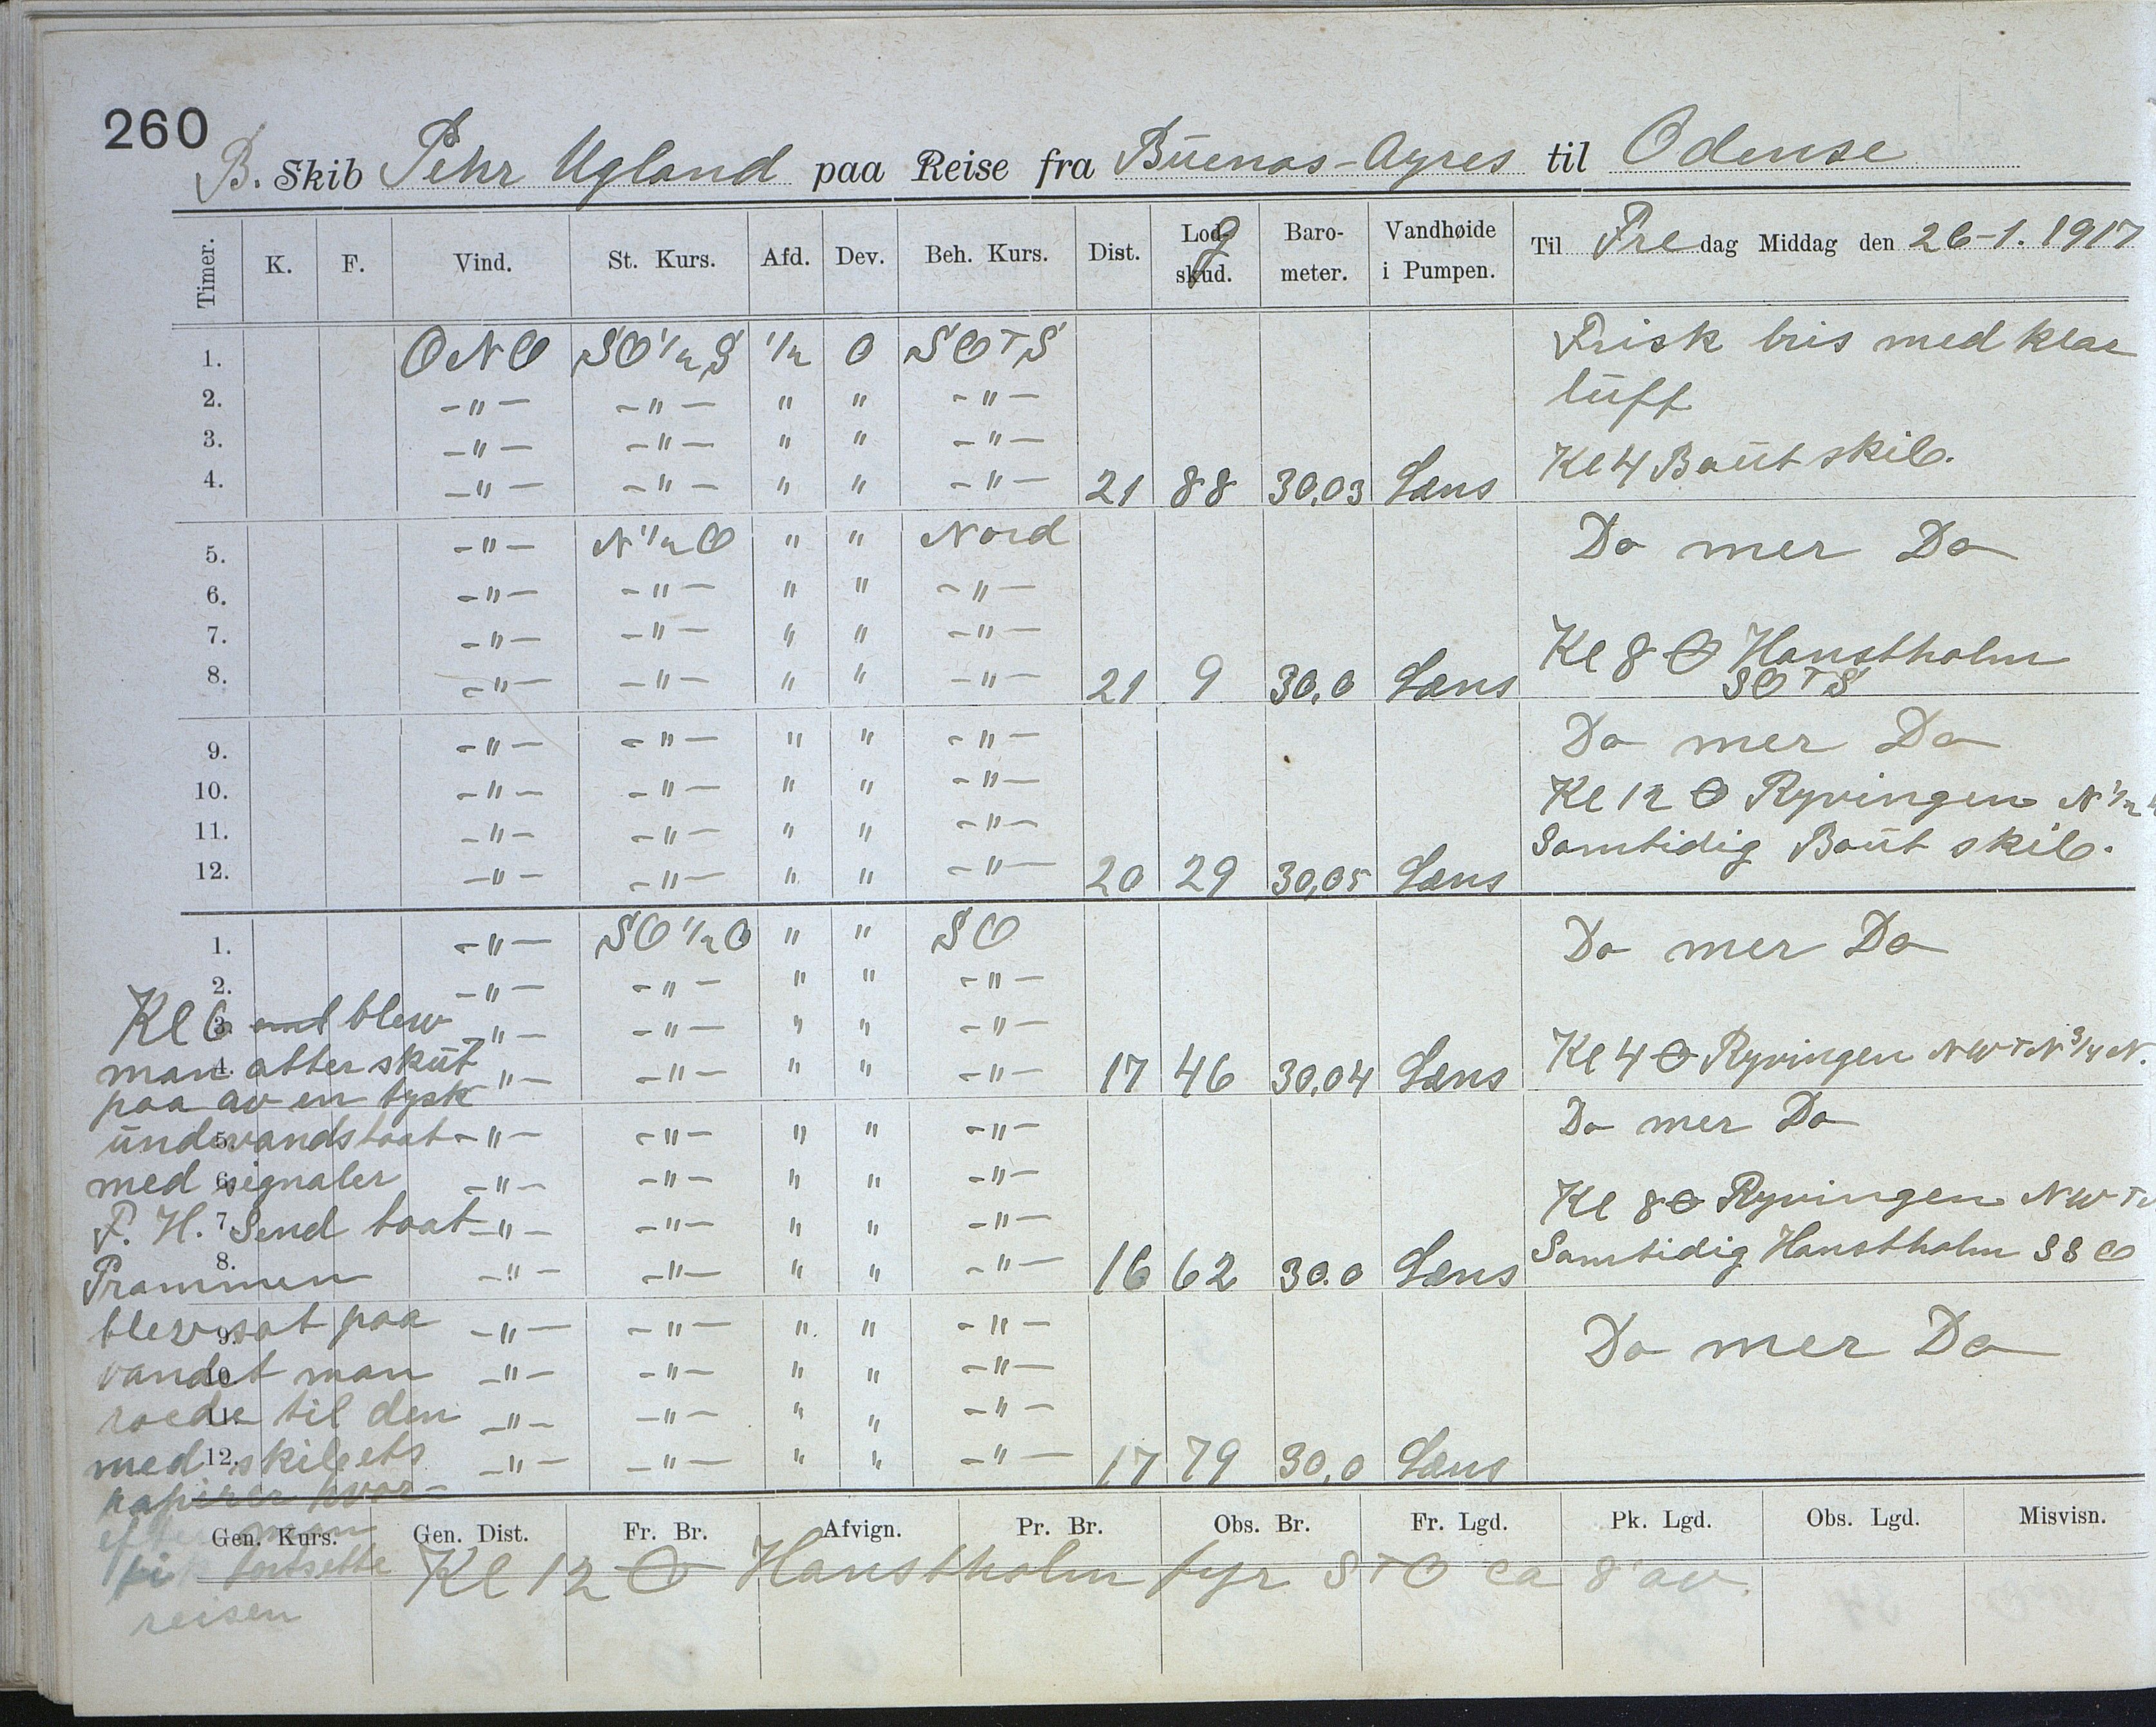 260
B. Skib Pehr Ugland paa Reise fra Buenos-Ayres til Odense
Timer. K. F. Vind. St. Kurs. Afd. Dev. Beh. Kurs. Dist. Lodskud. g Barometer. Vandhøide i Pumpen. Til Fredag Middag den 26-1. 1917
1. ONO SO 1/2 S 1/2 0 SOTS Frisk bris med klar
2. -"- -"- " " -"- luft
3. -"- -"- " " -"-
4. -"- -"- " " -"- 21 88 30,03 Læns Kl 4 Baut skib.
5. -"- N 1/2 O " " Nord Do mer Do
6. -"- -"- " " -"-
7. -"- -"- " " -"- Kl 8 Hanstholm
8. -"- -"- " " -"- 21 9 30,0 Læns SOTS
9. -"- -"- " " -"- Do mer Do
10. -"- -"- " " -"- Kl 12 Ryvingen N 1/2
11. -"- -"- " " -"- Samtidig Baut skib.
12. -"- -"- " " -"- 20 29 30,05 Læns
1. -"- SO 1/2 O " " SO Do mer Do
2. -"- -"- " " -"-
3. -"- -"- " " -"-
4. -"- -"- " " -"- 17 46 30,04 Læns Kl 4 Ryvingen NWTN 3/4 N.
5. -"- -"- " " -"- Do mer Do
6. -"- -"- " " -"- Kl 8 Ryvingen NWT
7. -"- -"- " " -"- Samtidig Hanstholm SSO
8. -"- -"- " " -"- 16 62 30.0 Læns
9. -"- -"- " " -"- Do mer Do
10 -"- -"- " " -"-
11. -"- -"- " " -"-
12. -"- -"- " " -"- 17 79 30,0 Læns
Kl 6 blew
man atter skut
paa av en tysk
undervandsbaat
med signaler
F. H. Send baat
Prammen
blew sat paa
vandet man
roede til den
med skibets
papirer hvor-
efter man
fortsette
reisen
Gen. Kurs. Gen. Dist. Fr. Br. Afvign. Pr. Br. Obs. Br. Fr. Lgd. Pk. Lgd. Obs. Lgd. Misvisn.
Kl 12 Hanstholm fyr STO ca 8' av.